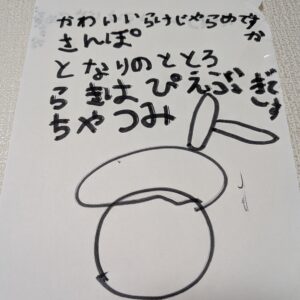 かわいいらけじゃらめですか
さんぽ
となりのととろ
らきはぴえぶぎですか
ちやつみ